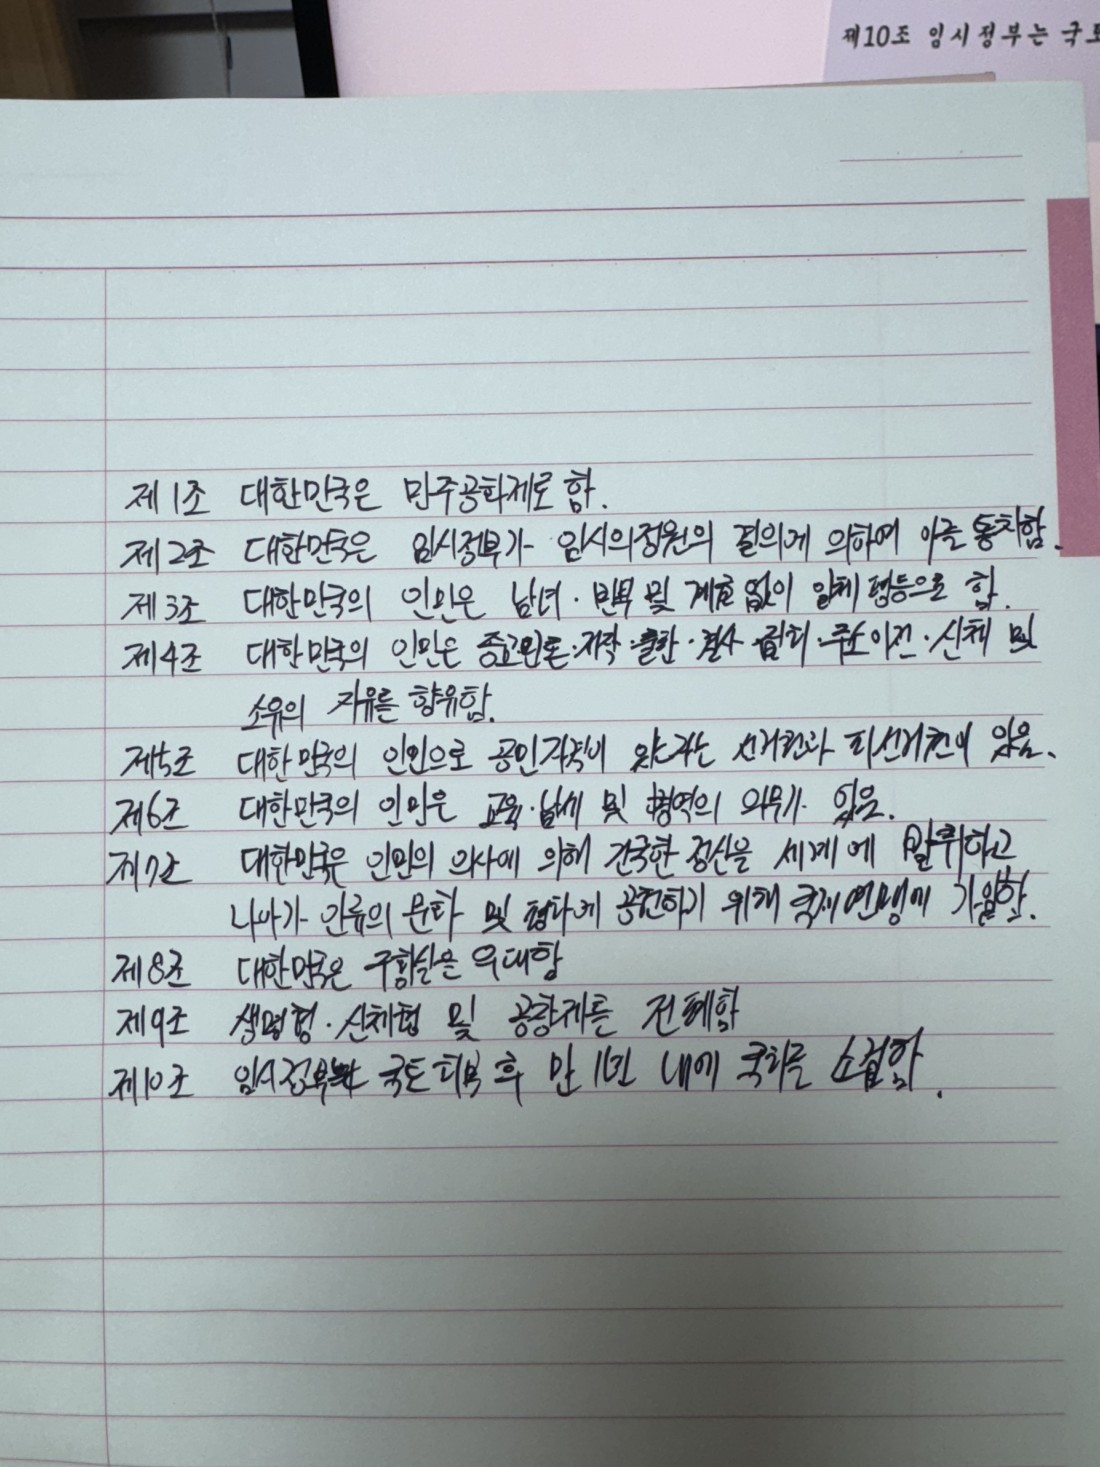 제10조 임시정부는 국토
제1조 대한민국은 민주공화제로 함.
제2조 대한민국은 임시정부가 임시의정원의 결의에 의하여 이를 통치함.
제3조 대한민국의 인민은 남녀·빈부 및 계급 없이 일체 평등으로 함.
제4조 대한민국의 인민은 종교·언론·저작·출판·결사·집회·주소이전·신체 및
소유의 자유를 향유함.
제5조 대한민국의 인민으로 공민자격이 있는자는 선거권과 피선거권이 있음.
제6조 대한민국의 인민은 교육·납세 및 병역의 의무가 있음.
제7조 대한민국은 인민의 의사에 의해 건국한 정신을 세계에 발휘하고
나아가 인류의 문화 및 평화에 공헌하기 위해 국제연맹에 가입함.
제8조 대한민국은 구황실을 우대함
제9조 생명형·신체형 및 공창제를 전폐함
제10조 임시정부는 국토회복 후 만 1년 내에 국회를 소집함.